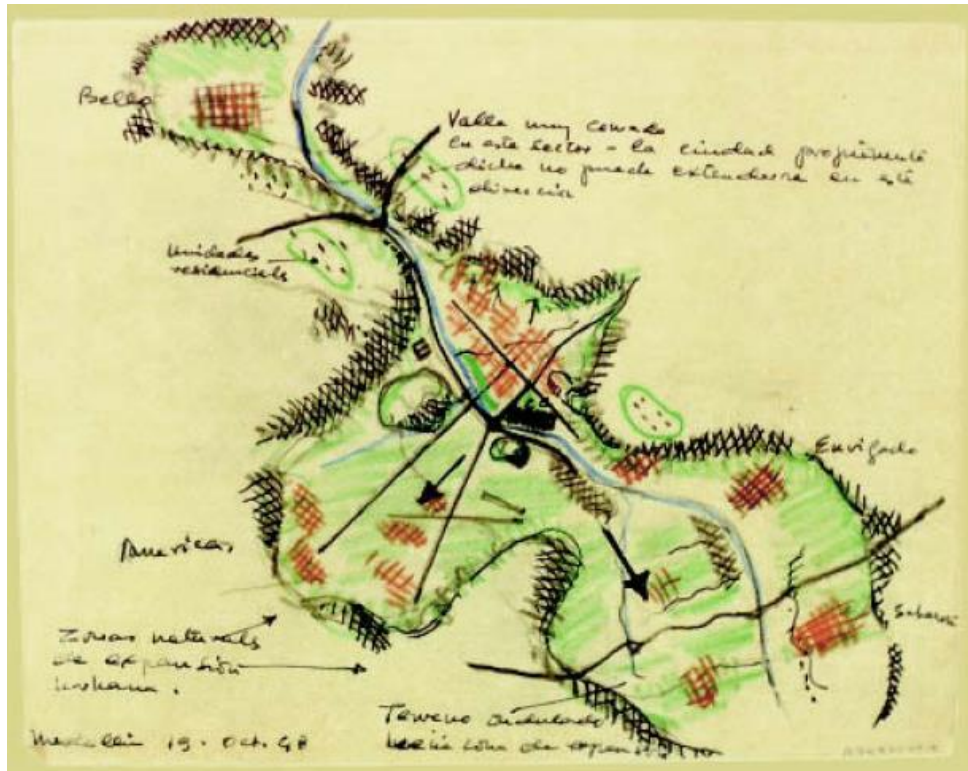 Bello
Valle muy cerrado
en este sector - la ciudad propiamente
dicha no puede extenderse en esta
dirección
Unidades
residenciales
Envigado
Americas
Zonas naturales
de expansión
urbana.
Terreno ondulado
de expansión
Medellin 19. Oct. 48